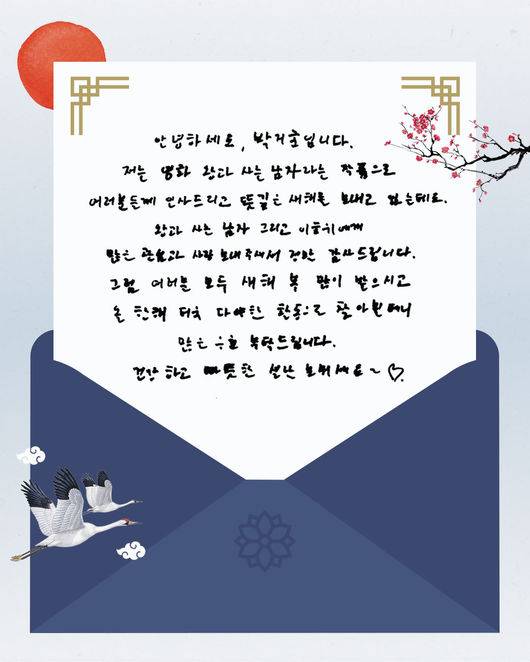 안녕하세요, 박지훈입니다.
저는 영화 왕과 사는 남자라는 작품으로
여러분들께 인사드리고 뜻깊은 새해를 보내고 있는데요.
왕과 사는 남자 그리고 이홍위에게
많은 관심과 사랑 보내주셔서 정말 감사드립니다.
그럼 여러분 모두 새해 복 많이 받으시고
올 한해 더욱 다양한 활동으로 찾아뵐테니
많은 응원 부탁드립니다.
건강하고 따뜻한 설날 보내세요~ ♡